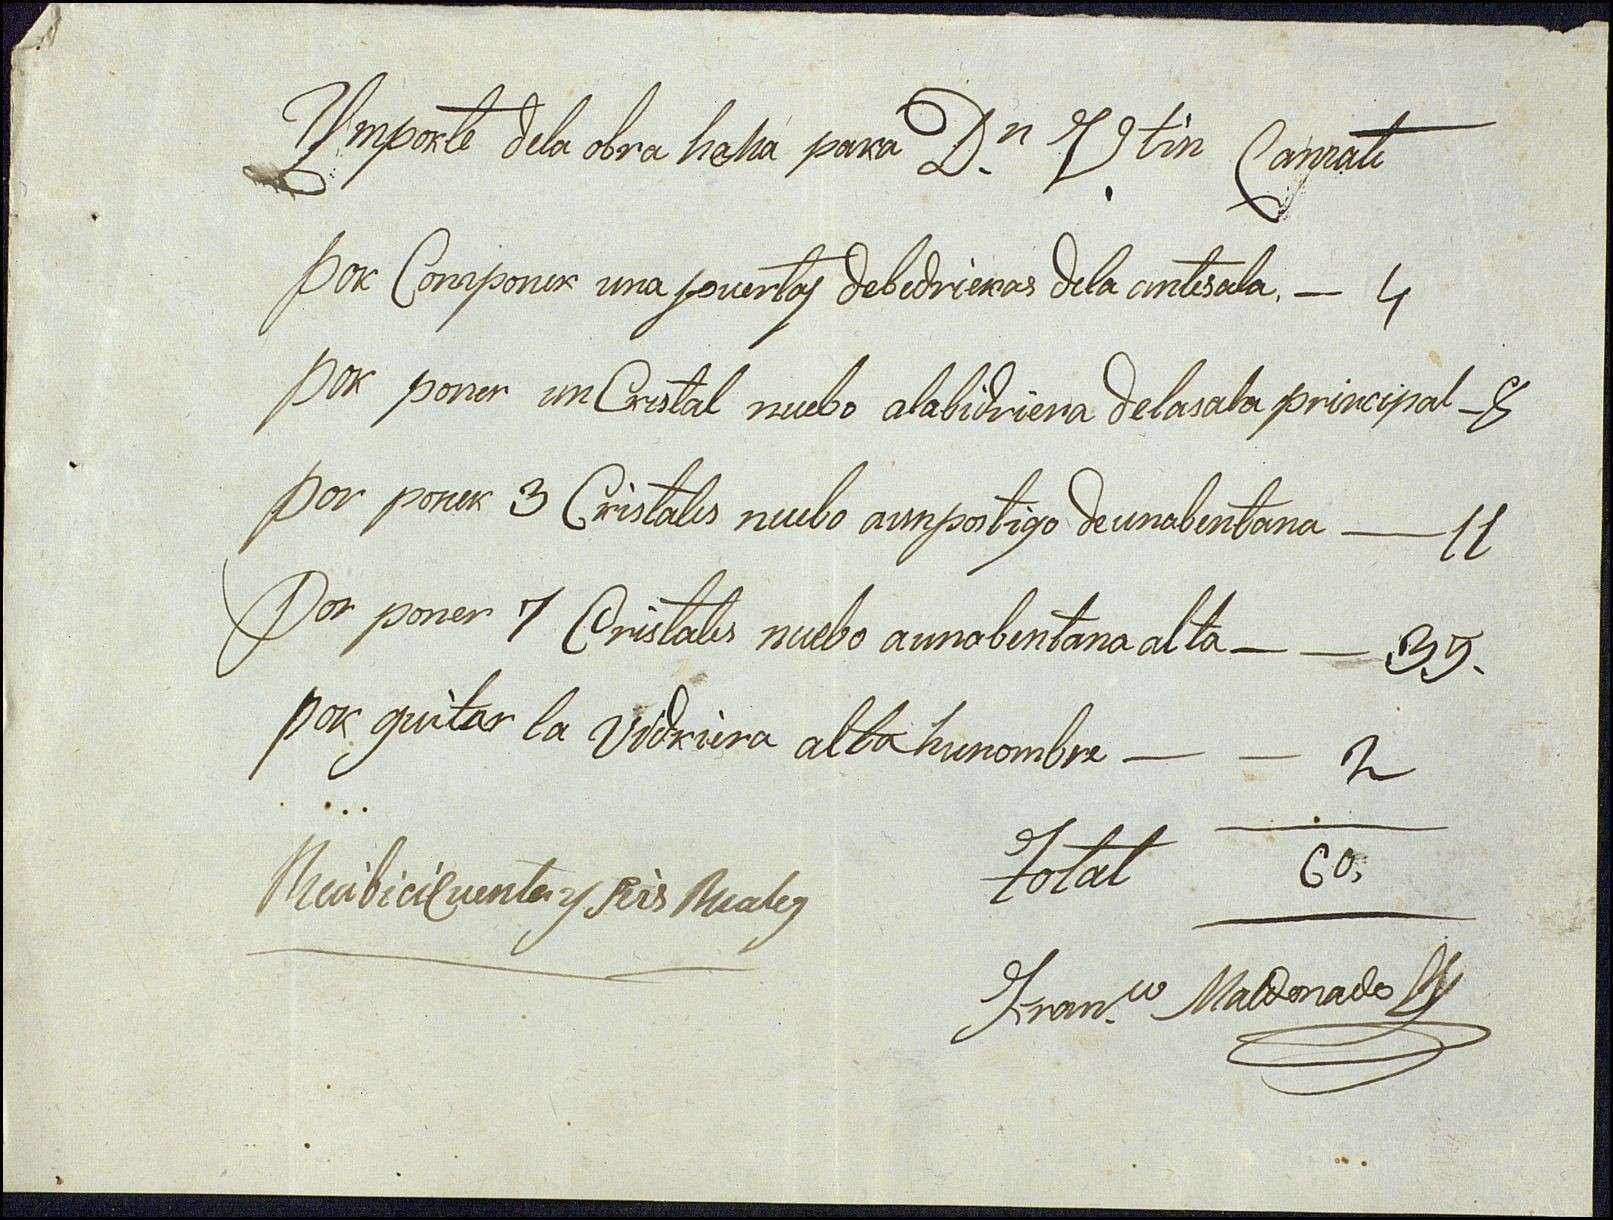 Ymporte dela obra hecha para Dn.
por Componer una puertas debedrieras dela antesala. — 4
por poner un Cristal nuebo alabidriera delasala principal — 8
por poner 3 Cristales nuebo aunpostigo deunabentana — 11
Por poner 7 Cristales nuebo aunabentana alta — — 35.
por quitar la Vidriera alta hunombre — — 2
Total 60,
Recibi ciCuenta y seis Reales
Fran.co Maldonado